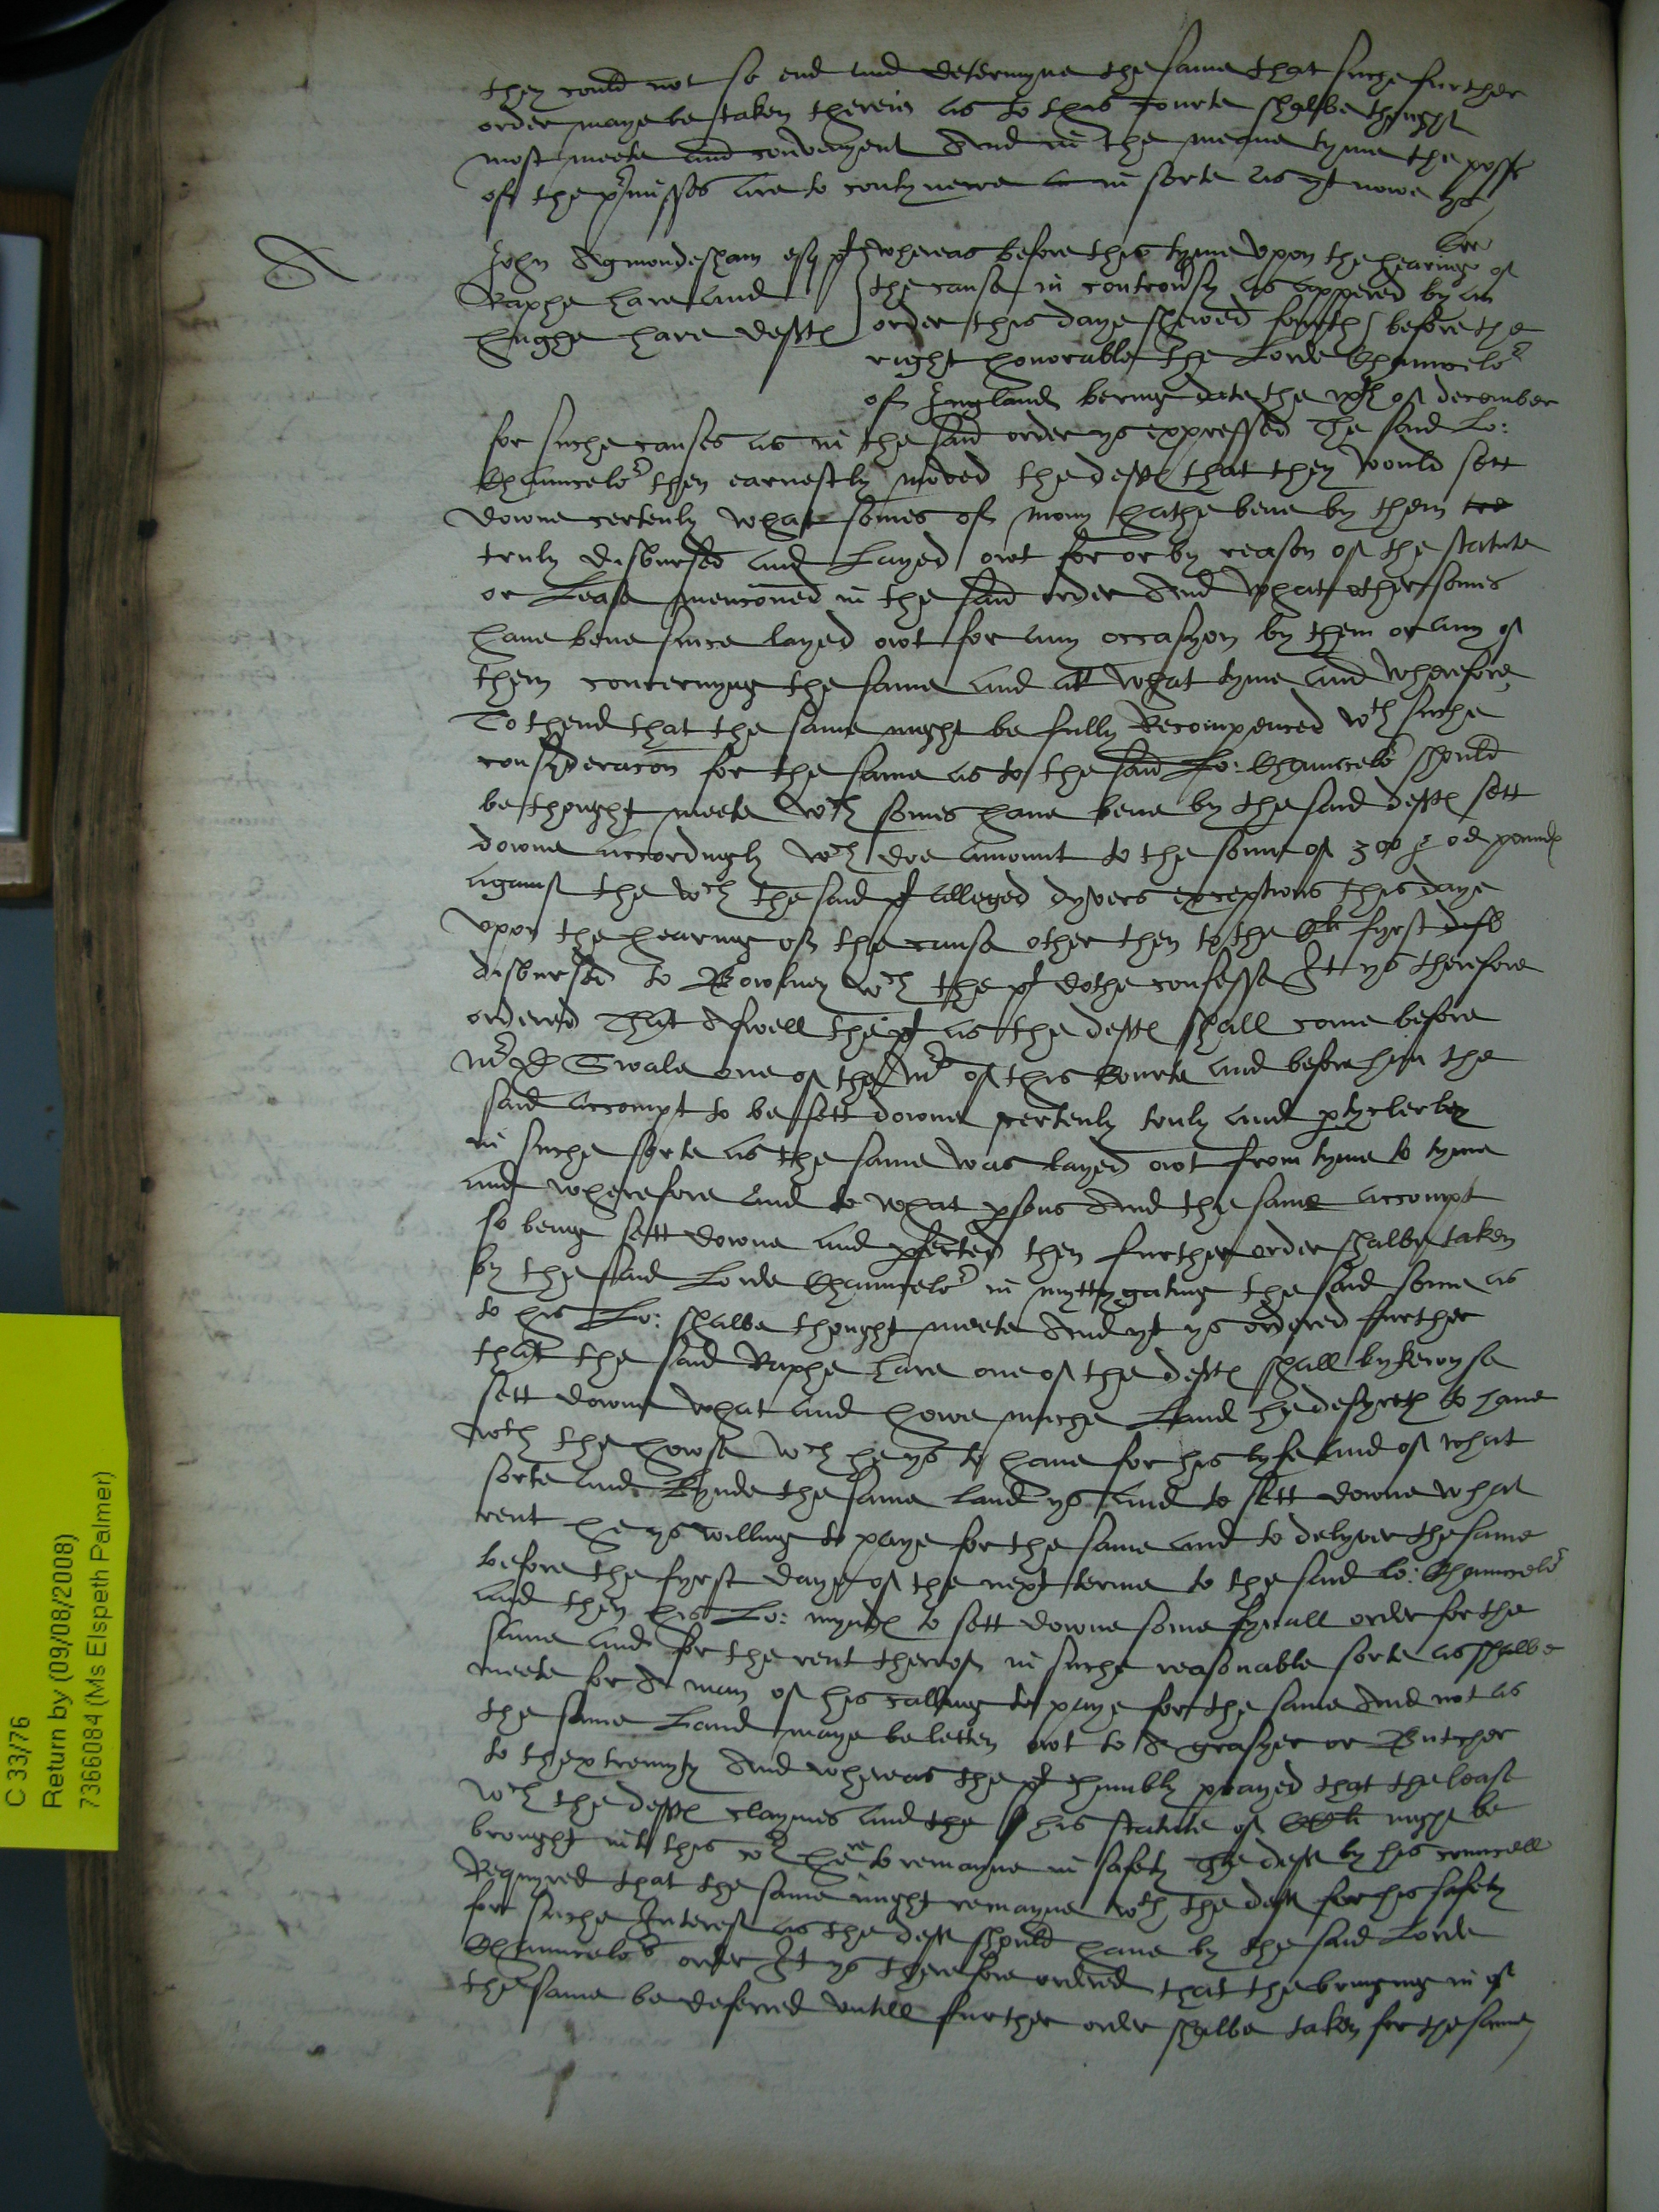 they could not so end and determyne the same that suche further
order maye be taken therein as to this Courte shalbe thought
most meete and convenyent And in the meane tyme the poss
of the pmisses are to contynewe in sorte as yt nowe ys
A
John Agmondesham esq pl
Raphe Hare and
Hughe Hare deftes
whereas before this tyme upon the hearing of
the cause in controvsy as appered by an
order this daye shewed fourth before the
right honorable the Lorde Chauncelor
of England bering date the of december
for suche causes as in the said order ys expressed The said Lo:
Chauncelor then earnestly moved the deftes that they would sett
downe certenly what somes of mony hathe bene by them
truly disbursed and Layed owt for or by reason of the statute
or Lease mencioned in the said order And what other somes
haue bene since layed owt for any occasyon by them or any of
them concernyng the same and att what tyme and wherefore
To thend that the same might be fully Recompenced wth suche
consyderacon for the same as to the said Lo: Chauncelor should
be thought meete wch somes haue bene by the said deftes sett
downe accordingly wch doe amount to the some of 3000 & od poundes
against the wch the said pl alleged dyvers exceptions this daye
upon the hearing of the cause other then to the fyrst
disbursed to wch the pl dothe confesse It ys therefore
ordered That Aswell the pl as the deftes shall come before
mr D Swale one of the mrs of this Courte and before him the
said accompt to be sett downe certenly truly and ptyclerly
in suche sorte as the same was layed owt from tyme to tyme
and wherefore and to what psons And the same accompt
so being sett downe and pfected then further order shalbe taken
by the said Lorde Chauncelor in myttygating the said some as
to his Lo: shalbe thought meete And yt ys ordered further
that the said Raphe Hare one of the deftes shall lykewyse
sett downe what and howe muche Land he desyreth to haue
wth the howse wch he ys to haue for his lyfe and of what
sorte and kynde the same land ys and to sett downe what
rent he ys willing to paye for the same and to delyver the same
before the fyrst daye of the next terme to the said Lo: Chauncelor
and then his Lo: myndes to sett downe some fynall order for the
same and for the rent therof in suche reasonable sorte as shalbe
meete for A man of his calling to paye for the same And not as
the same Land maye be letten owt to A grasyer or Butcher
to thextremyty And whereas the pl humbly prayed that the lease
wch the deftes claymes and the his statute of might be
brought into this cort here to remayne in safety The deft by his councell
Requyred that the same might remayne wth the deft for his safety
for suche Interest as the deft should haue by the said Lorde
Chauncelors order It ys therefore ordered that the bringing in of
the same be deferred untill further order shalbe taken for the same
C 33/76
Return by (09/08/2008)
7366084 (Ms Elspeth Palmer)